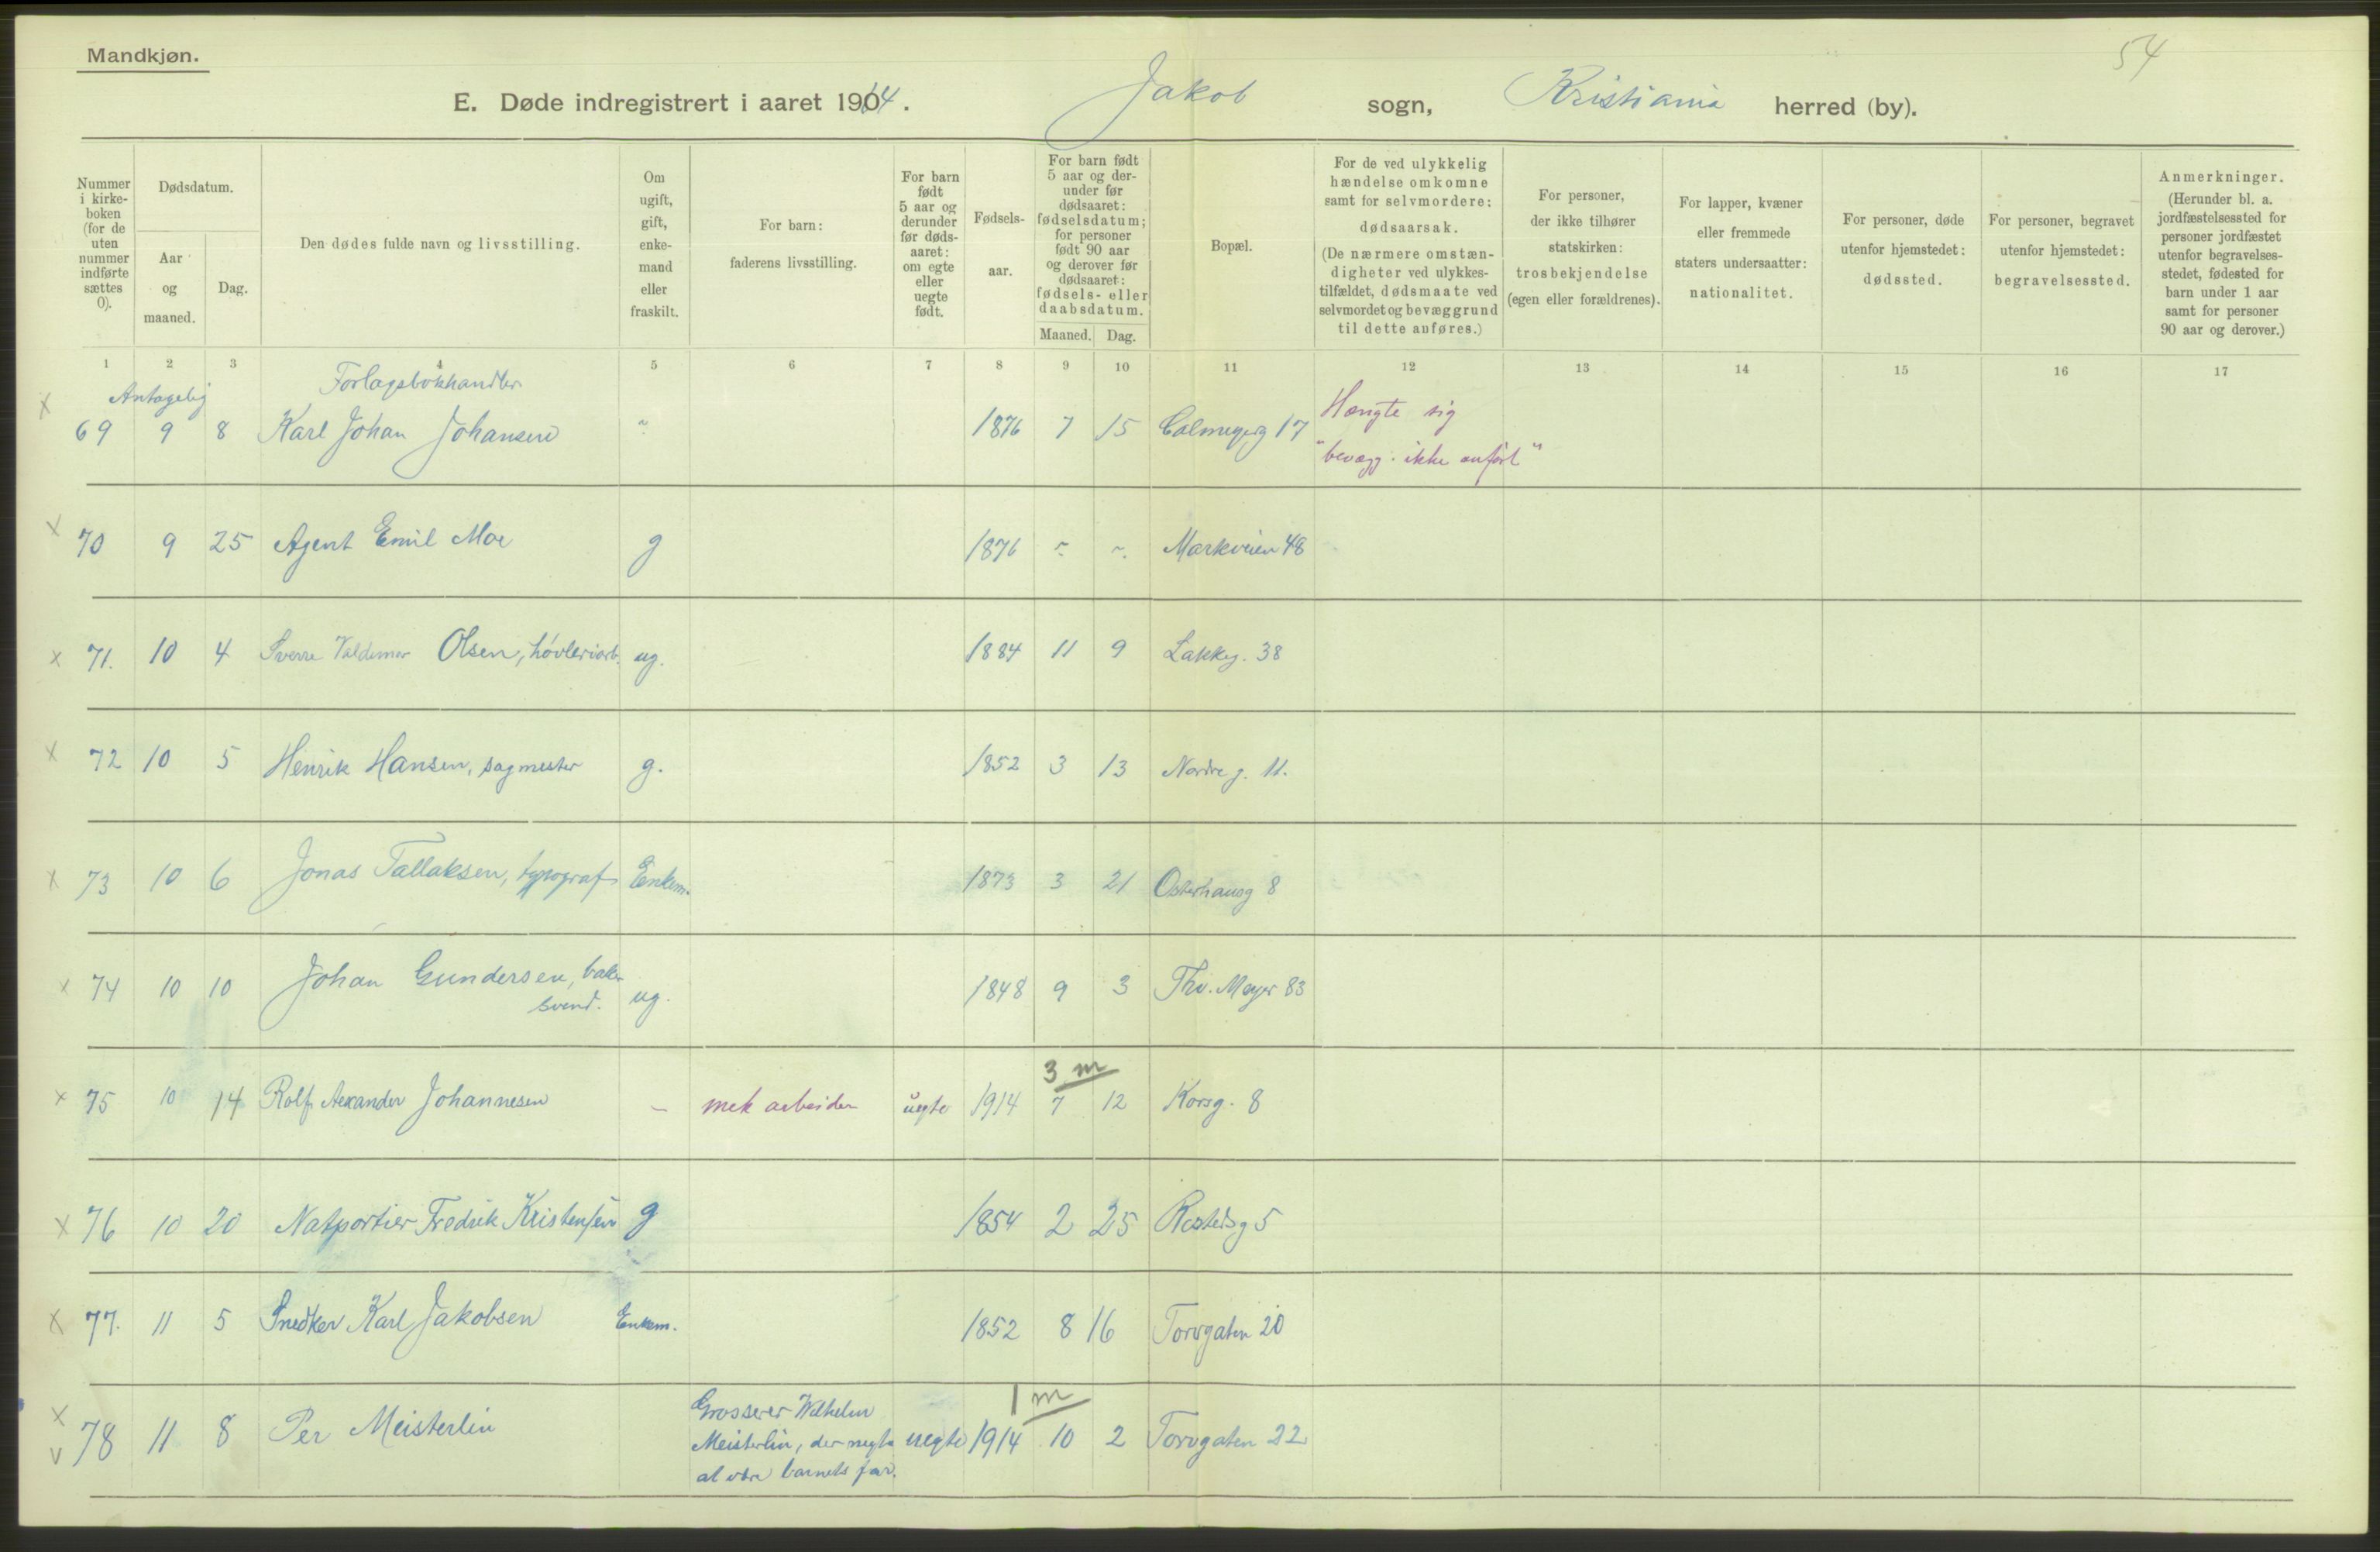 Mandkjøn.
54
E. Døde indregistrert i aaret 1914. Jakob sogn, Kristiania herred (by).
Nummer i kirke-boken (for de uten nummer indførte sættes 0).
Dødsdatum.
Aar og maaned.
Dag.
Den dødes fulde navn og livsstilling.
Om ugift, gift, enke-mand eller fraskilt.
For barn: faderens livsstilling.
For barn født 5 aar og derunder før døds-aaret: om egte eller uegte født.
Fødsels-aar.
For barn født 5 aar og der-under før dødsaaret: fødselsdatum; for personer født 90 aar og derover før dødsaaret: fødsels- eller daabsdatum.
Maaned. Dag.
Bopæl.
For de ved ulykkelig hændelse omkomne samt for selvmordere: dødsaarsak.
(De nærmere omstæn-digheter ved ulykkes-tilfældet, dødsmaate ved selvmordet og bevæggrund til dette anføres.)
For personer, der ikke tilhører statskirken: trosbekjendelse (egen eller forældrenes).
For lapper, kvæner eller fremmede staters undersaatter: nationalitet.
For personer, døde utenfor hjemstedet: dødssted.
For personer, begravet utenfor hjemstedet: begravelsessted.
Anmerkninger.
(Herunder bl. a. jordfæstelsessted for personer jordfæstet utenfor begravelses-stedet, fødested for barn under 1 aar samt for personer 90 aar og derover.)
1 2 3 4 5 6 7 8 9 10 11 12 13 14 15 16 17
Antagelig Forlagsbokhandler
x 69 9 8 Karl Johan Johansen ~ 1876 7 15 Calmeyerg 17 Hængte sig
"bevægg. ikke anført"
x 70 9 25 Agent Emil Moe g 1876 ~ ~ Markveien 48
x 71. 10 4 Sverre Valdemar Olsen, høvleriarb. ug. 1884 11 9 Lakkeg. 38
x 72 10 5 Henrik Hansen, sagmester g. 1852 3 13 Nordre g. 11.
x 73 10 6 Jonas Tallaksen, typograf Enkem. 1873 3 21 Osterhausg 8
x 74 10 10 Johan Gundersen, baker
svend. ug. 1848 9 3 Thv. Meyer 83
3 m
x 75 10 14 Rolf Alexander Johannesen – mek arbeider uegte 1914 7 12 Korsg. 8
x 76 10 20 Natportier Fredrik Kristensen g 1854 2 25 Rostedsg 5
x 77. 11 5 Snedker Karl Jakobsen Enkem. 1852 8 16 Torvgaten 20
1 m
Grosserer Wilhelm
x v 78 11 8 Per Meisterlin Meisterlin, der negte uegte 1914 10 2 Torvgaten 22
at være barnets far.